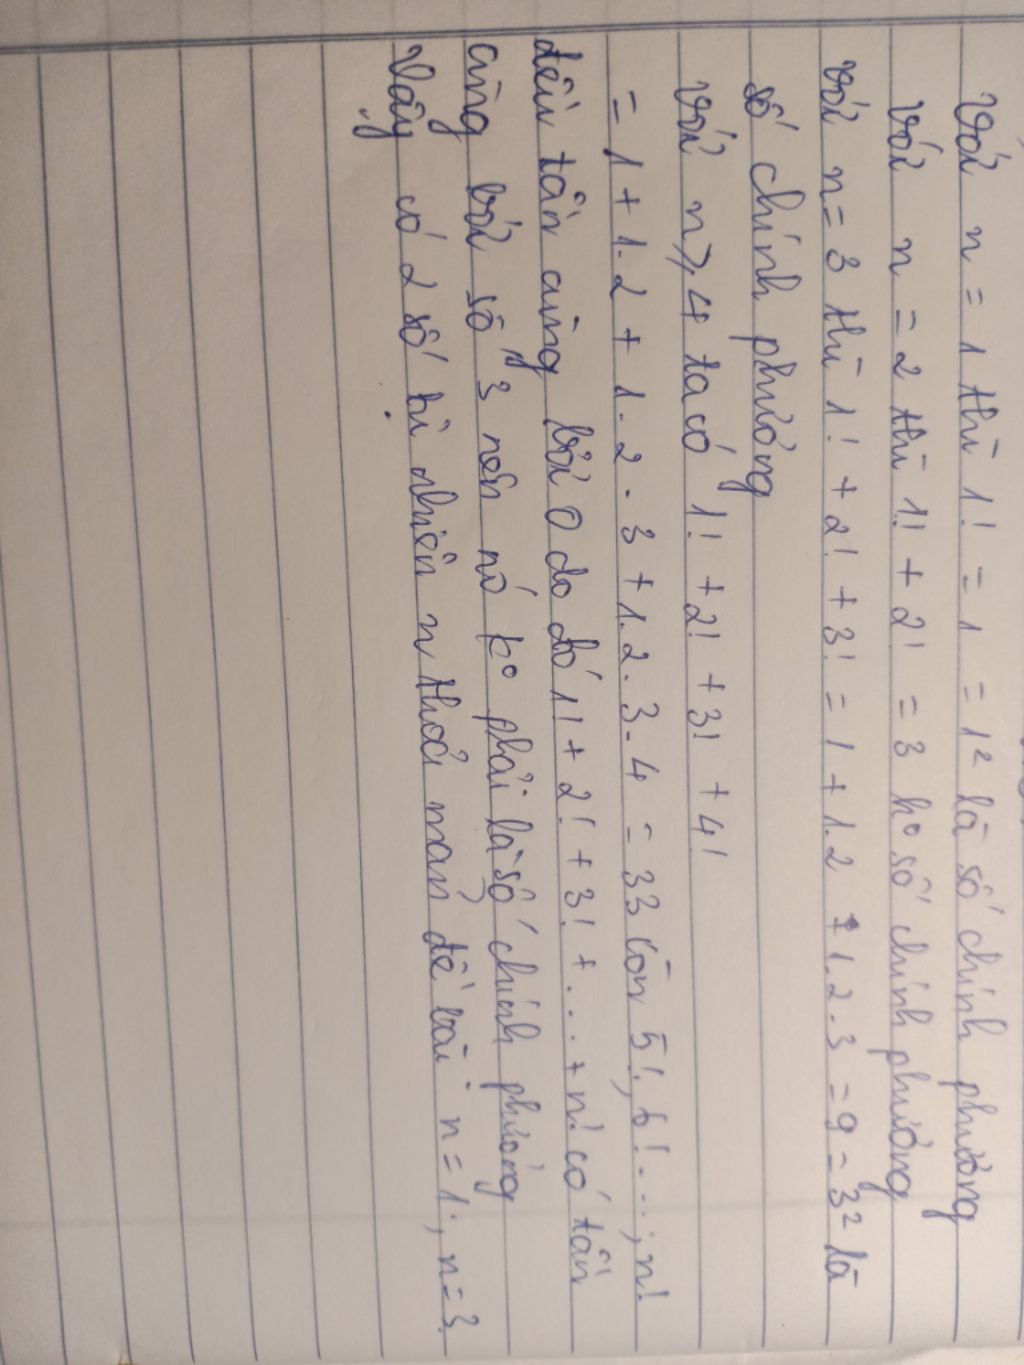 Với n = 1 thì 1! = 1 = 1² là số chính phương
Với n = 2 thì 1! + 2! = 3 ko số chính phương
với n = 3 thì 1! + 2! + 3! = 1 + 1.2 + 1.2.3 = 9 = 3² là
số chính phương
Với n ⩾ 4 ta có 1! + 2! + 3! + 4!
= 1 + 1.2 + 1.2.3 + 1.2.3.4 = 33 còn 5!, 6! ...; n!
đều tận cùng bởi 0 do đó 1! + 2! + 3! + ... + n! có tận
cùng bởi số 3 nên nó ko phải là số chính phương
Vậy có 2 số tự nhiên n thoả mãn đề bài n = 1; n = 3.